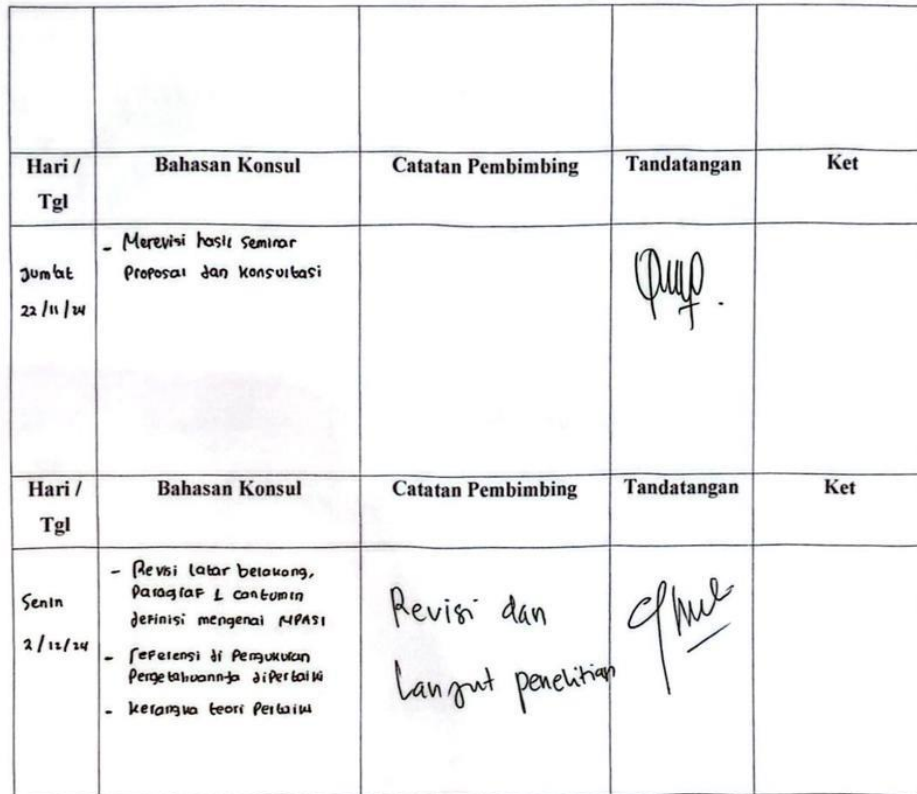 Hari / Tgl Bahasan Konsul Catatan Pembimbing Tandatangan Ket
Jumat
22/11/24
- Merevisi hasil seminar
Proposal dan konsultasi
Hari / Tgl Bahasan Konsul Catatan Pembimbing Tandatangan Ket
Senin
2/12/24
- Revisi latar belakang,
Paragraf 1 cantumin
definisi mengenai MPASI
- referensi di Pengukuran
Pengetahuannya diperbaiki
- kerangka teori Perbaiki
Revisi dan
Lanjut penelitian